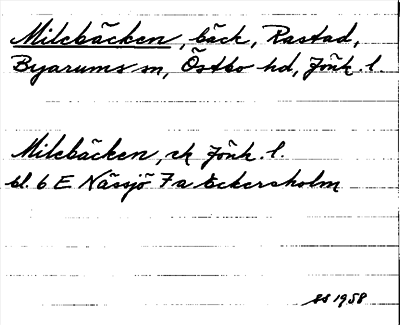 Milebäcken, bäck, Rastad,
Byarums sn, Östbo hd, Jönk. l.
Milebäcken, ek Jönk. l.
bl. 6 E Nässjö 7a Eckersholm
SS 1958